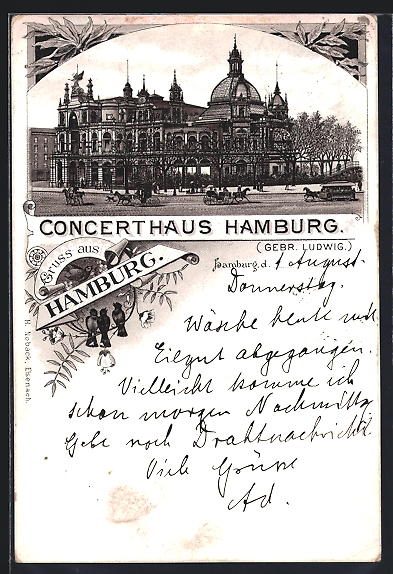 CONCERTHAUS HAMBURG.
(GEBR. LUDWIG.)
Gruss aus
HAMBURG.
Hamburg, d. 1 August.
Donnerstag.
Wäsche heute mit
Eilgut abgegangen.
Vielleicht komme ich
schon morgen Nachmittg
Gebe noch Drahtnachricht.
Viele Grüsse
Ad.
H. Noback, Eisenach.